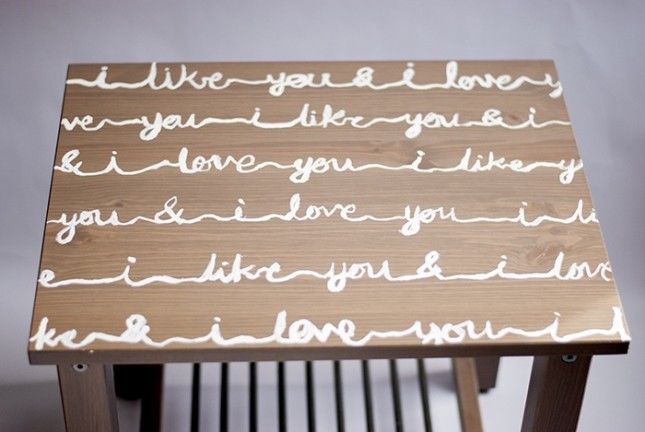 i like you & i love y
ve you i like you & i
& i love you i like y
you & i love you i li
e i like you & i love
ke & i love you i l